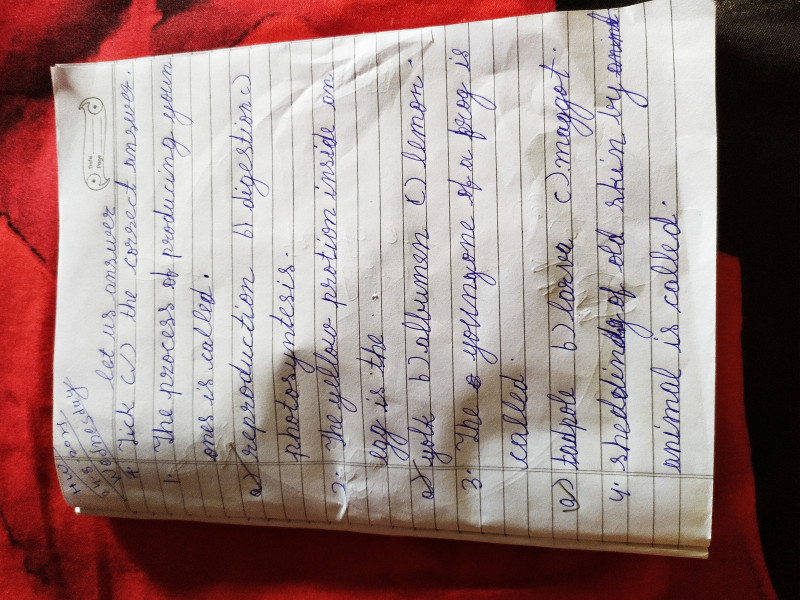 H.W Don
Wednesday
Date
Page
let us answer
* Tick (✓) the correct answer.
1. The process of producing youn
ones is called.
a) reproduction b) digestion c)
photosyntesis.
2. The yellow protion inside an
egg is the
a) yolk b) albumen c) lemon.
3. The youngone of a frog is
called.
a) tadpole b) larva c) maggot.
4. shedding of old skin by
animal is called.